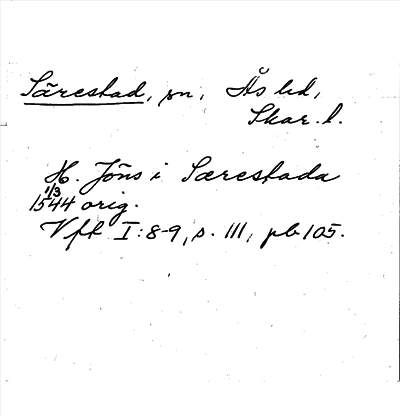 Särestad, sn, Ås hd,
Skar. l.
H. Jöns i Særestada
1/3
1544 orig.
Vft I:8-9, s. 111, pb 105.